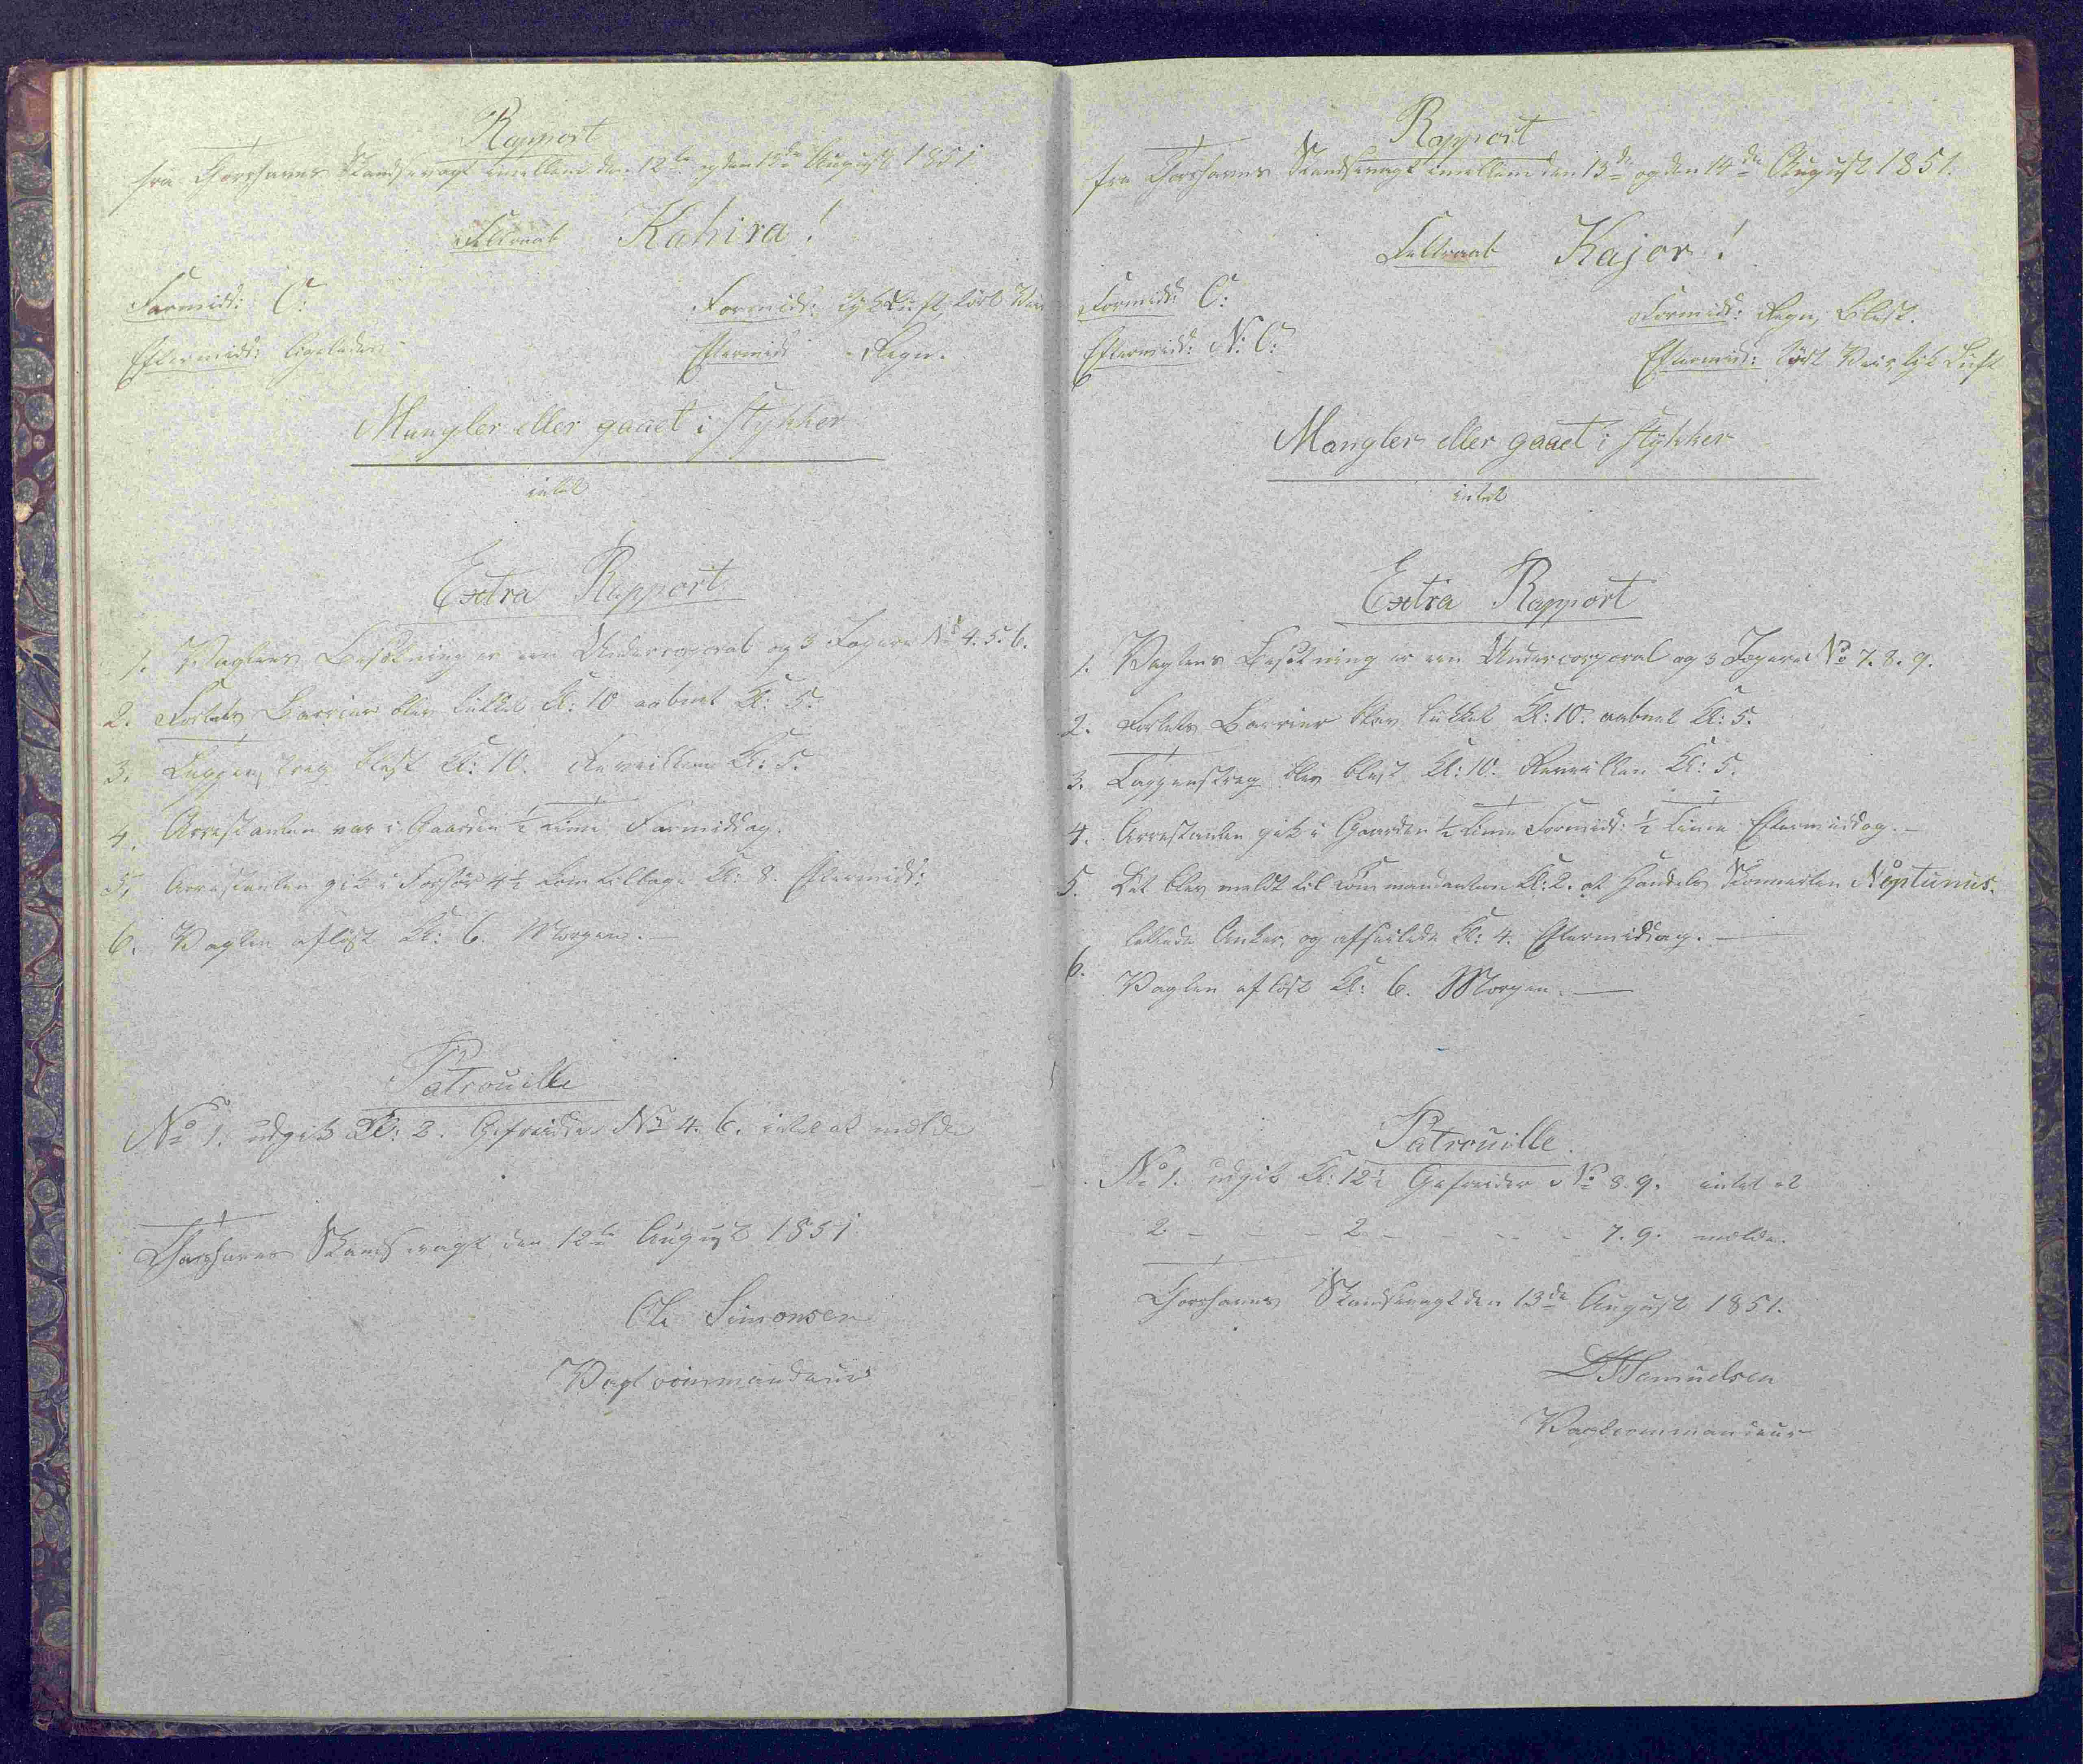 Rapport
fra Thorshavns Skandsevagt imellem den 12te og den 13de August 1851
Feltraab Kahira!
Formidd: O:
Formidd: tyk Luft, tørt Veir
Eftermidd: ligeledes
Eftermidd: Regn.
Mangler eller gaaet i stykker
intet
Extra Rapport
1. Vagtens Besætning er een Undercorporal og 3 Jægere No 4. 5. 6.
2. Fortets Barriere blev lukket Kl: 10 aabnet Kl: 5.
3. Tappenstreg blest Kl: 10. Reveillen Kl: 5.
4. Arrestanten var i Gaarden ½ Time Formiddag.
5. Arrestanten gik i Forhör 4½ kom tilbage Kl: 8. Eftermidd:
6. Vagten aflöst Kl: 6. Morgen.
Patrouille
No 1. udgik Kl: 2. Gefreider No 4. 6. intet at melde
Thorshavns Skandsevagt den 12te August 1851
Ole Simonsen
Vagtcommandeur
Rapport
fra Thorshavns Skandsevagt imellem den 13de og den 14de August 1851.
Feltraab Kajor!
Formidd: O:
Formidd: Regn, Blest.
Eftermidd: N: O:
Eftermidd: tørt Veir tyk Luft
Mangler eller gaaet i stykker
intet
Extra Rapport
1. Vagtens Besætning er een Undercorporal og 3 Jægere No 7. 8. 9.
2. Fortets Barriere blev lukket Kl: 10. aabnet Kl: 5.
3. Tappenstreg blev blest Kl: 10. Reveillen Kl: 5.
4. Arrestanten gik i Gaarden ½ Time Formidd: ½ Time Eftermiddag.
5. Det blev meldt til Commandanten Kl: 2. at Handels Skonnerten Neptunus.
lettede Anker, og afseilede Kl: 4. Eftermiddag.
6. Vagten aflöst Kl: 6. Morgen.
Patrouille.
No 1. udgik Kl: 12½ Gefreider No 8. 9. intet at
2 - - - 2 - - - - 7. 9. melde.
Thorshavns Skandsevagt den 13de August 1851.
Samuelsen
Vagtcommandeur